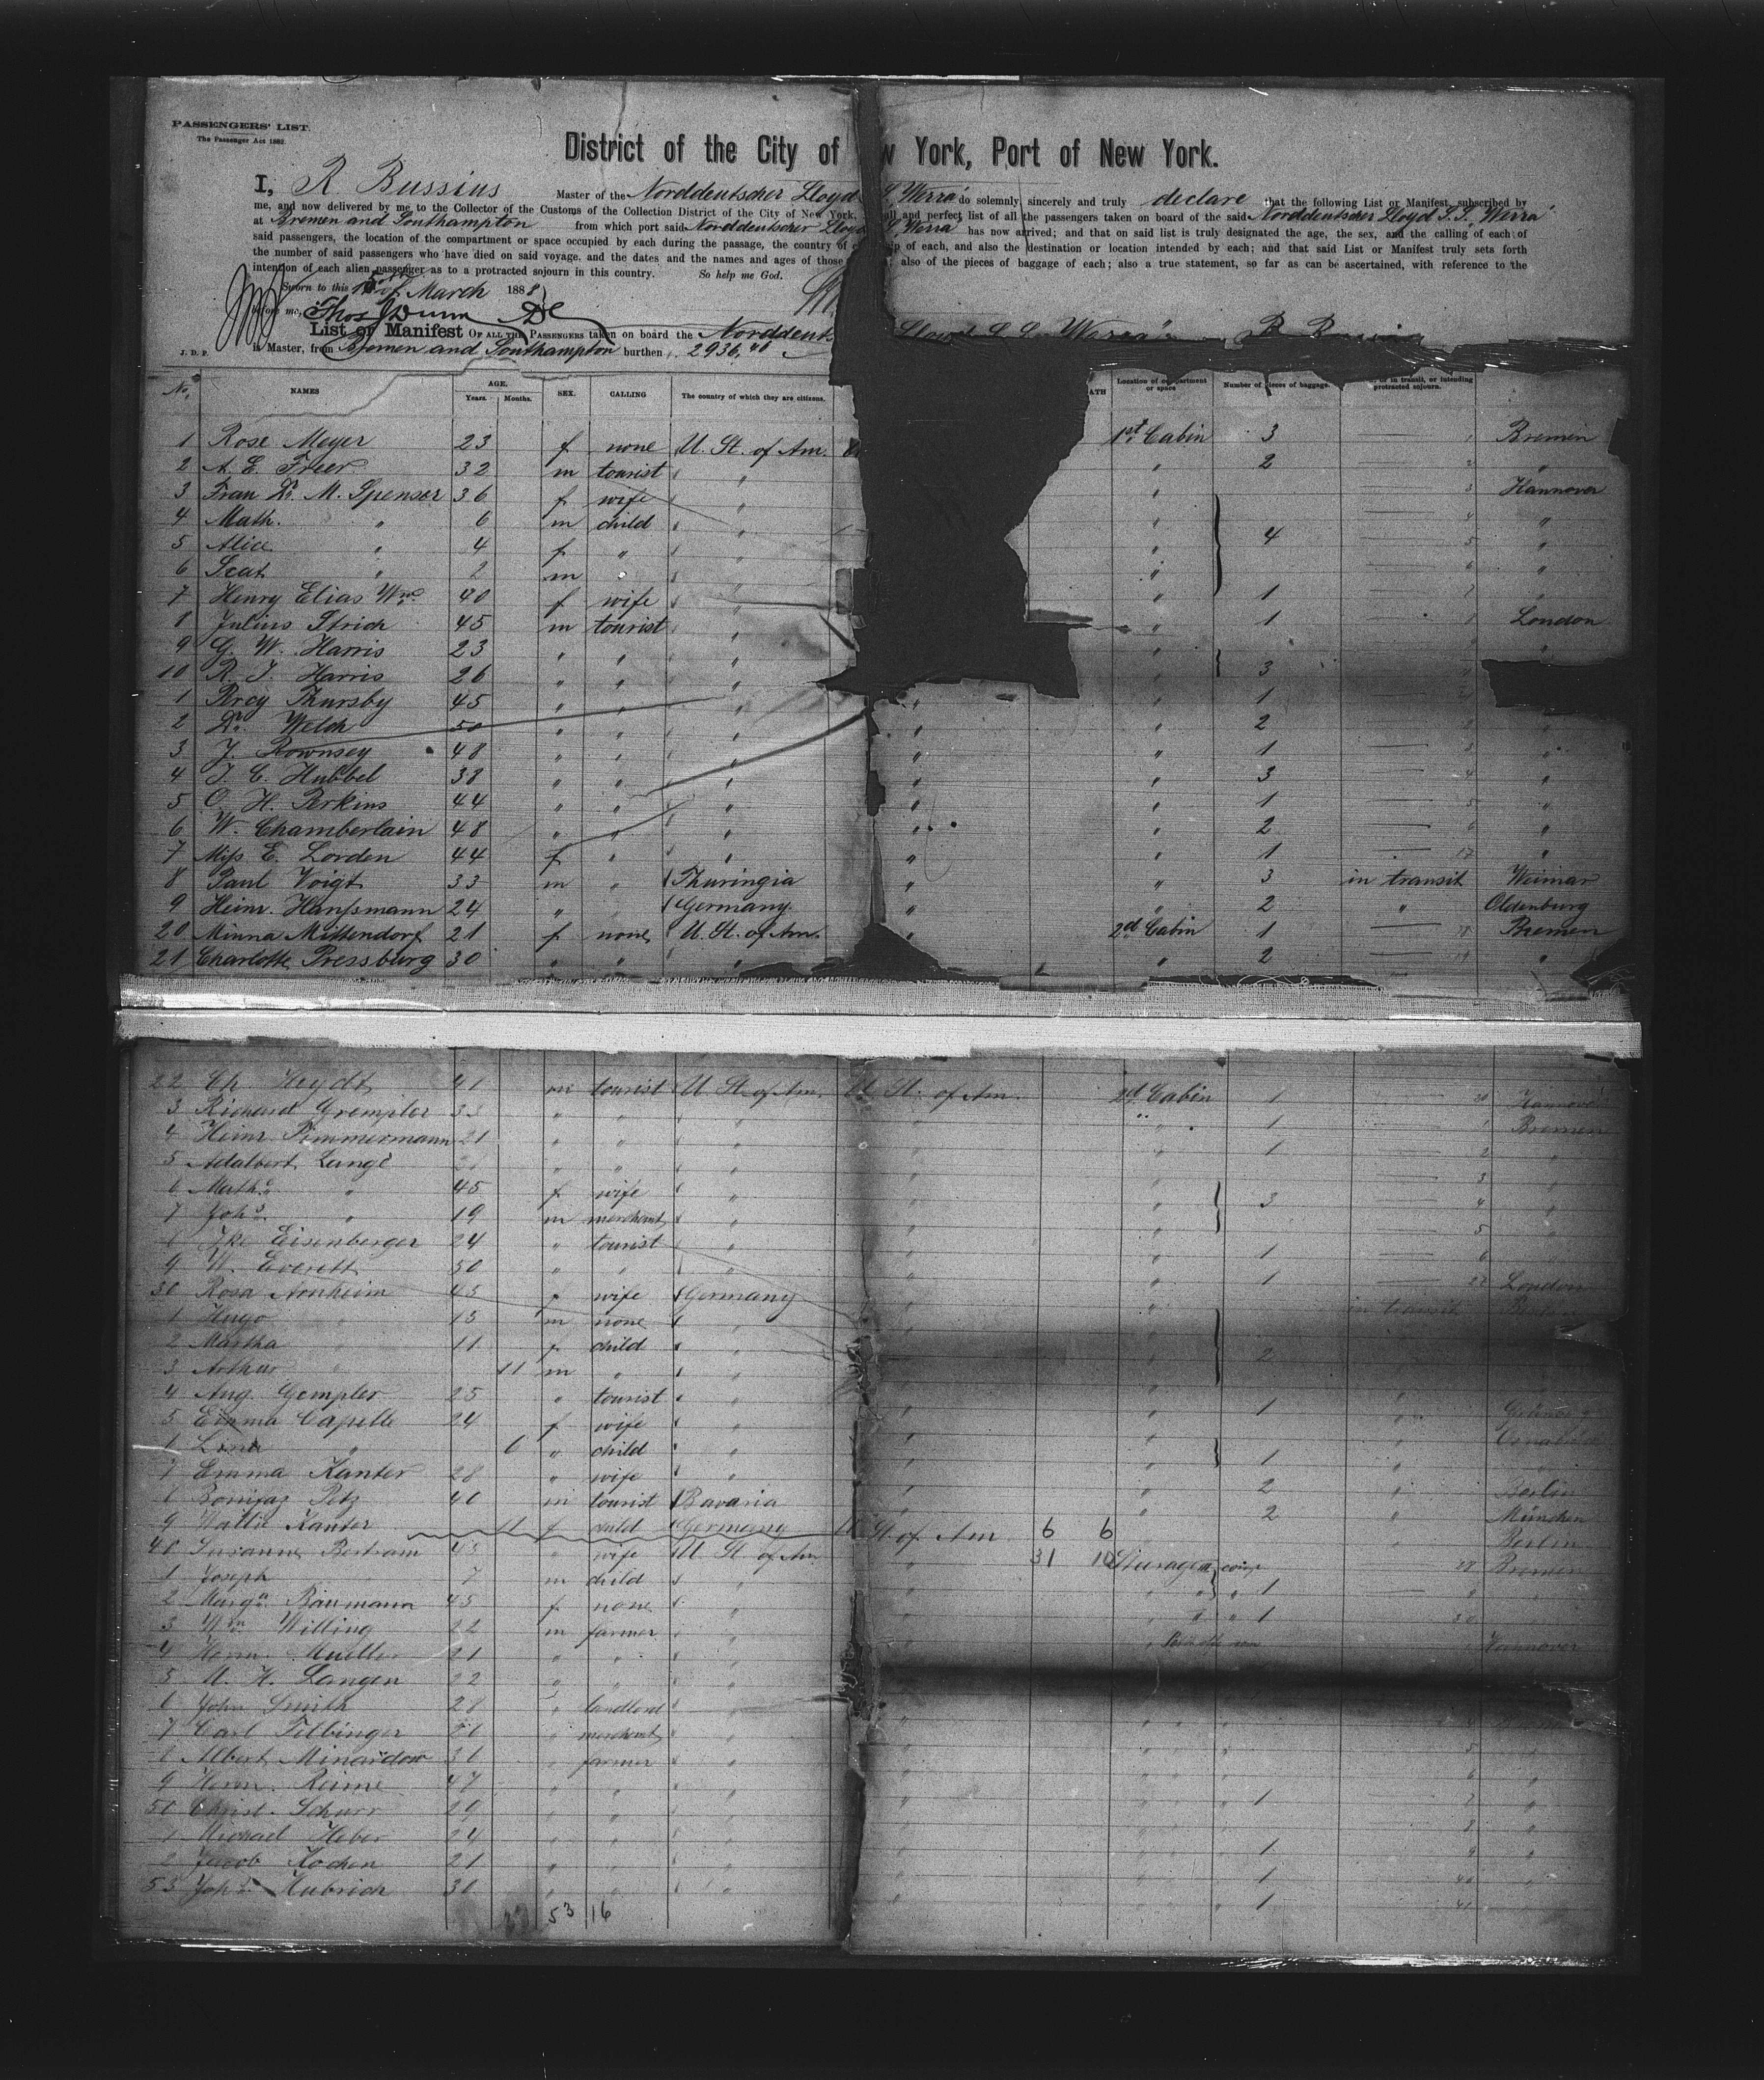 PASSENGERS' LIST.
The Passenger Act 1882.
District of the City of w York, Port of New York.
I, R. Bussius Master of the Norddeutscher Lloyd S. Werra do solemnly, sincerely and truly declare that the following List or Manifest, subscribed by
me, and now delivered by me to the Collector of the Customs of the Collection District of the City of New York, all and perfect list of all the passengers taken on board of the said Norddeutscher Lloyd S.S. Werra
at Bremen and Southampton from which port said Norddeutscher Lloyd S. Werra has now arrived; and that on said list is truly designated the age, the sex, and the calling of each of
said passengers, the location of the compartment or space occupied by each during the passage, the country of ip of each, and also the destination or location intended by each; and that said List or Manifest truly sets forth
the number of said passengers who have died on said voyage, and the dates and the names and ages of those ; also of the pieces of baggage of each; also a true statement, so far as can be ascertained, with reference to the
intention of each alien passenger as to a protracted sojourn in this country. So help me God.
Sworn to this of March 1888
before me, Thos J Dunn DC
List or Manifest OF ALL THE PASSENGERS taken on board the Norddeuts Lloyd S.S. Werra R. Bussius
is Master, from Bremen and Southampton burthen 2936,40
J. D. P.
No. NAMES AGE. Years. Months. SEX. CALLING The country of which they are citizens. ATH Location of compartment or space Number of pieces of baggage. or in transit, or intending protracted sojourn.
1 Rose Meyer 23 f none U. St. of Am. 1st Cabin 3 1 Bremen
2 A. E. Freer 32 m tourist " " 2 2 "
3 Frau Dr. M. Spenser 36 f wife " " 3 Hannover
4 Math. " 6 m child " " 4 "
5 Alice " 4 f " " " 4 5 "
6 " 2 m " " 6 "
7 Henry Elias Wm. 40 f wife " " 1 7 "
8 Julius Strich 45 m tourist " " 1 London
9 G. W. Harris 23 " " " " "
10 R. J. Harris 26 " " " " 3
1 Percy Thursby 45 " " " " " 1
2 Dr. Welch 50 " " " " " 2 "
3 J. Rownsey 48 " " " " " 1 3 "
4 J. C. Hubbel 38 " " " " " 3 4 "
5 O. H. Perkins 44 " " " " " 1 5 "
6 W. Chamberlain 48 " " " " " 2 6 "
7 Miss E. Lorden 44 f " " " " 1 17 "
8 Paul Voigt 33 m " Thuringia " " 3 in transit Weimar
9 Heinr. Hanssmann 24 " " Germany " " 2 " Oldenburg
20 Minna Mittendorf 21 f none U. St. of Am. " 2d Cabin 1 18 Bremen
21 Charlotte Pressburg 30 " " " " 2 19 "
22 Ch. Heydt 41 m tourist U. St. of Am. U. St. of Am. 2d Cabin 1 20 Hannover
3 Richard Grempler 33 " " " " 1 1 Bremen
4 Heinr. Zimmermann 21 " " " " 1 2 "
5 Adalbert Lange " " " " 3 "
6 Mathe. " 45 f wife " " 3 4 "
7 Johs. " 19 m merchant " " 5 "
Ike Eisenberger 24 " tourist " " 1 6 "
9 W. Everett 50 " " " " 1 27 London
30 Rosa Arnheim 45 f wife Germany " in transit
1 Hugo " 15 m none " "
2 Martha " 11 f child " " 2
3 Arthur " 11 m " " "
4 Aug. Gempler 25 " tourist " " 1 "
5 Emma Capelle 24 f wife " " "
Lina " 6 " child " " 1 "
7 Emma Kanter 28 " wife " " 2 " Berlin
Bonifaz Petz 40 m tourist Bavaria " 2 " München
9 Wallie Kanter 11 f child Germany U. St. of Am 6 6 Berlin
40 Susanne Bertram wife U. St. of Am. " 31 10 Steerage Bremen
1 Joseph 7 m child " " 1 "
2 Marga. Baumann 45 f none " " 1 30
3 Wm. Willing 22 m farmer " " Hannover
4 Herm. Mueller 21 " " "
5 U. H. Langen 22 " " "
6 John Smith 28 " landlord "
7 Carl Fellbinger " merchant " "
8 Albert Minardow 31 " farmer " " 5
9 Herm. Reime 47 " " " " 6 "
50 Christ. Schurr 29 " " " " 1 7 "
1 Michael Heber 24 " " " " 8 "
2 Jacob Kochen 21 " " " " 1 9 "
53 Johs. Hubrich 30 " " " " 1 40
1 41
53 16